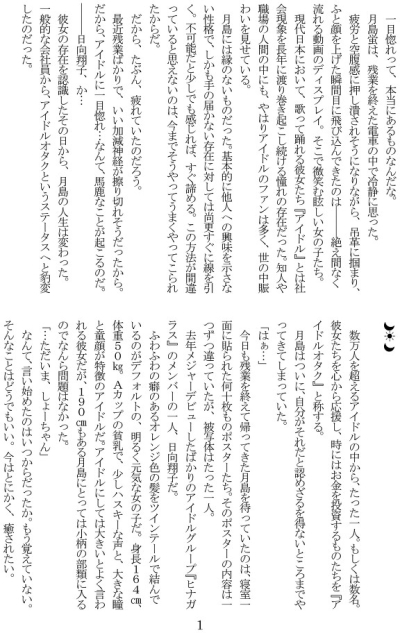 一目惚れって、本当にあるものなんだな。
月島蛍は、残業を終えた電車の中で冷静に思った。
疲労と空腹感に押し潰されそうになりながら、吊革に掴まり、
ふと顔を上げた瞬間目に飛び込んできたのは――絶え間なく
流れる動画のディスプレイ。そこで微笑む眩しい女の子たち。
現代日本において、歌って踊れる彼女たち『アイドル』とは社
会現象を長年に渡り巻き起こし続ける憧れの存在だった。知人や
職場の人間の中にも、やはりアイドルのファンは多く、世の中賑
わいを見せている。
月島には縁のないものだった。基本的に他人への興味を示さな
い性格で、しかも手の届かない存在に対しては尚更すぐに線を引
く、不可能だと少しでも感じれば、すぐ諦める。この方法が間違
っていると思えないのは、今までそうやってうまくやってこられ
たからだ。
だから、たぶん 疲れていたのだろう。
最近残業ばかりで、いい加減神経が擦り切れそうだったから。
だから、アイドルに一目惚れ…なんて、馬鹿なことが起こるのだ。
――日向翔子、か…
彼女の存在を認識したその日から、月島の人生は変わった。
一般的な会社員から、アイドルオタクというステータスへと豹変
したのだった。
数万人を超えるアイドルの中から、たった一人。もしくは数名。
彼女たちを心から応援し、時にはお金を投資するものたちを『ア
イドルオタク』と称する。
月島はついに、自分がそれだと認めざるを得ないところまでや
ってきてしまっていた。
「はぁ…」
今日も残業を終えて帰ってきた月島を待っていたのは、寝室一
面に貼られた何十枚ものポスターたち。そのポスターの内容は一
つずつ違っていたが、被写体はたった一人。
去年メジャーデビューしたばかりのアイドルグループ『ヒナガ
ラス』のメンバーの一人、日向翔子だ。
ふわふわの癖のあるオレンジ色の髪をツインテールで結んで
いるのがデフォルトの、明るく元気な女の子だ。身長164㎝、
体重50㎏。Aカップの貧乳で、少しハスキーな声と、大きな瞳
と童顔が特徴のアイドルだ。アイドルにしては大きいとよく言わ
れる彼女だが、190㎝もある月島にとっては小柄の部類に入る
のでなんら問題はなかった。
「…ただいま、しょーちゃん」
なんて、言い始めたのはいつからだったか。もう覚えていない。
そんなことはどうでもいい。今はとにかく、癒されたい。
1